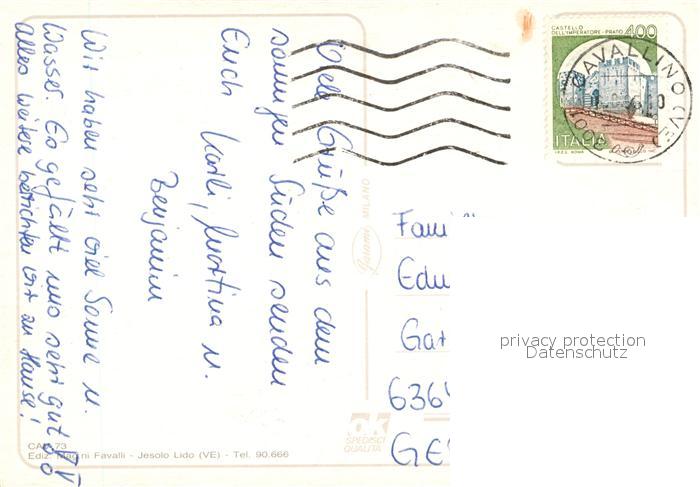 Viele Grüße aus dem
sonnigen Süden senden
Euch Karli, Martina u.
Benjamin
Wir haben sehr viel Sonne u.
Wasser. Es gefällt uns sehr gut
Alles weitere berichten wir zu Hause!
CASTELLO
DELL'IMPERATORE - PRATO 400
ITALIA
I.P.Z.S. ROMA
CAVALLINO (VE)
Fami
Edu
Gar
636
GE
privacy protection
Datenschutz
MILANO
OK
SPEDISCI
QUALITÀ
CAV 73
Ediz. Magini Favalli - Jesolo Lido (VE) - Tel. 90.666